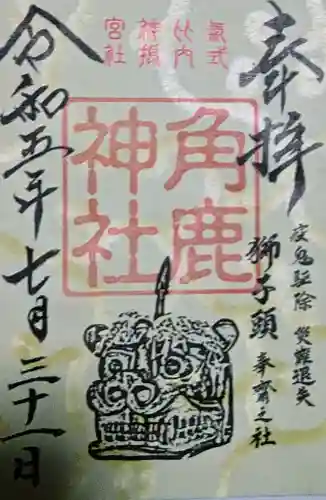 奉拝
疫鬼駈除 災難退失
獅子頭 奉齋之社
氣比神宮
式内摂社
角鹿
神社
令和五年七月三十一日